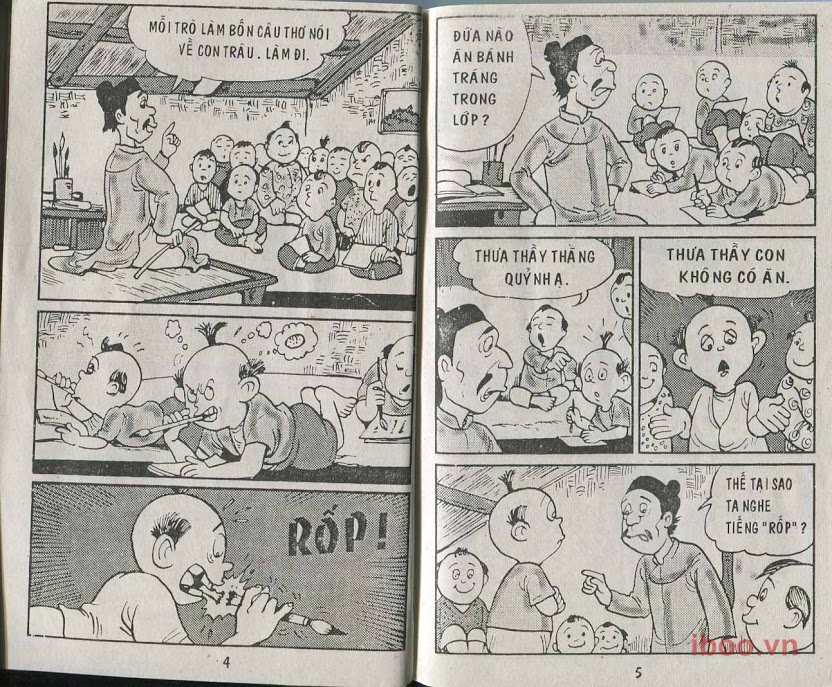 MỖI TRÒ LÀM BỐN CÂU THƠ NÓI
VỀ CON TRÂU. LÀM ĐI.
RỐP!
4
ĐỨA NÀO
ĂN BÁNH
TRÁNG
TRONG
LỚP?
THƯA THẦY THẰNG
QUỶNH Ạ.
THƯA THẦY CON
KHÔNG CÓ ĂN.
THẾ TẠI SAO
TA NGHE
TIẾNG "RỐP"?
5
iboo.vn